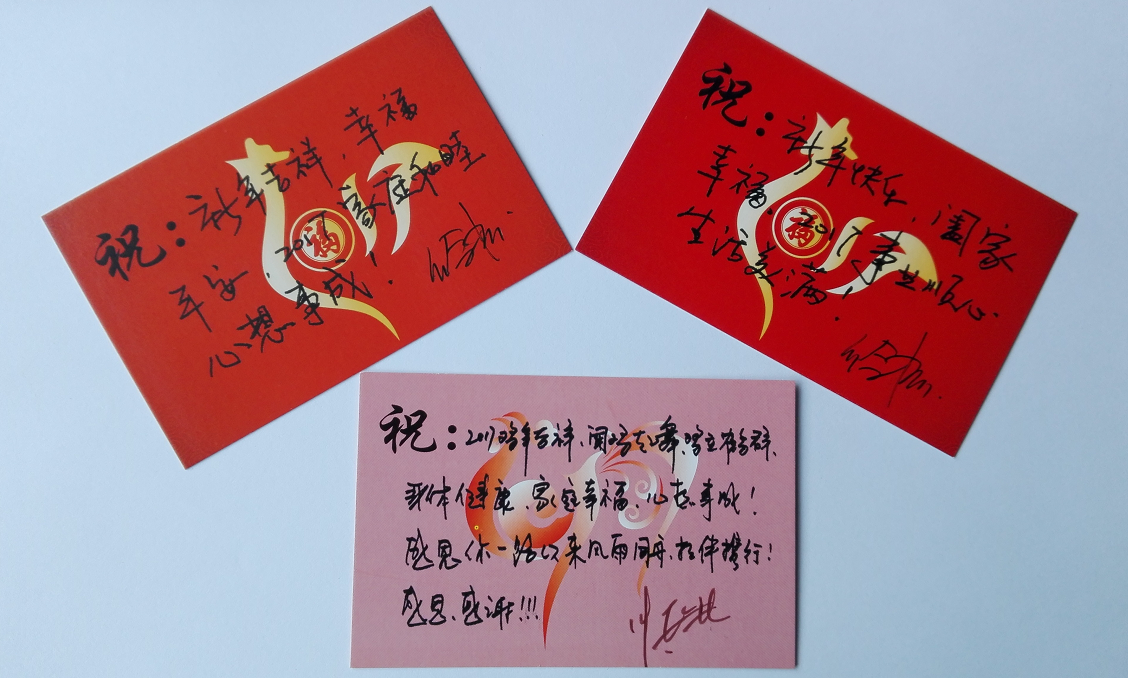 祝：新年吉祥，幸福
平安，2017家庭和睦
心想事成！
福
祝：新年快乐，阖家
幸福，2017事业顺心
生活美满！
福
祝：2017鸡年吉祥、闻鸡起舞、鸡立鹤群、
身体健康、家庭幸福、心想事成！
感恩你一路以来风雨同舟、相伴携行！
感恩、感谢!!!